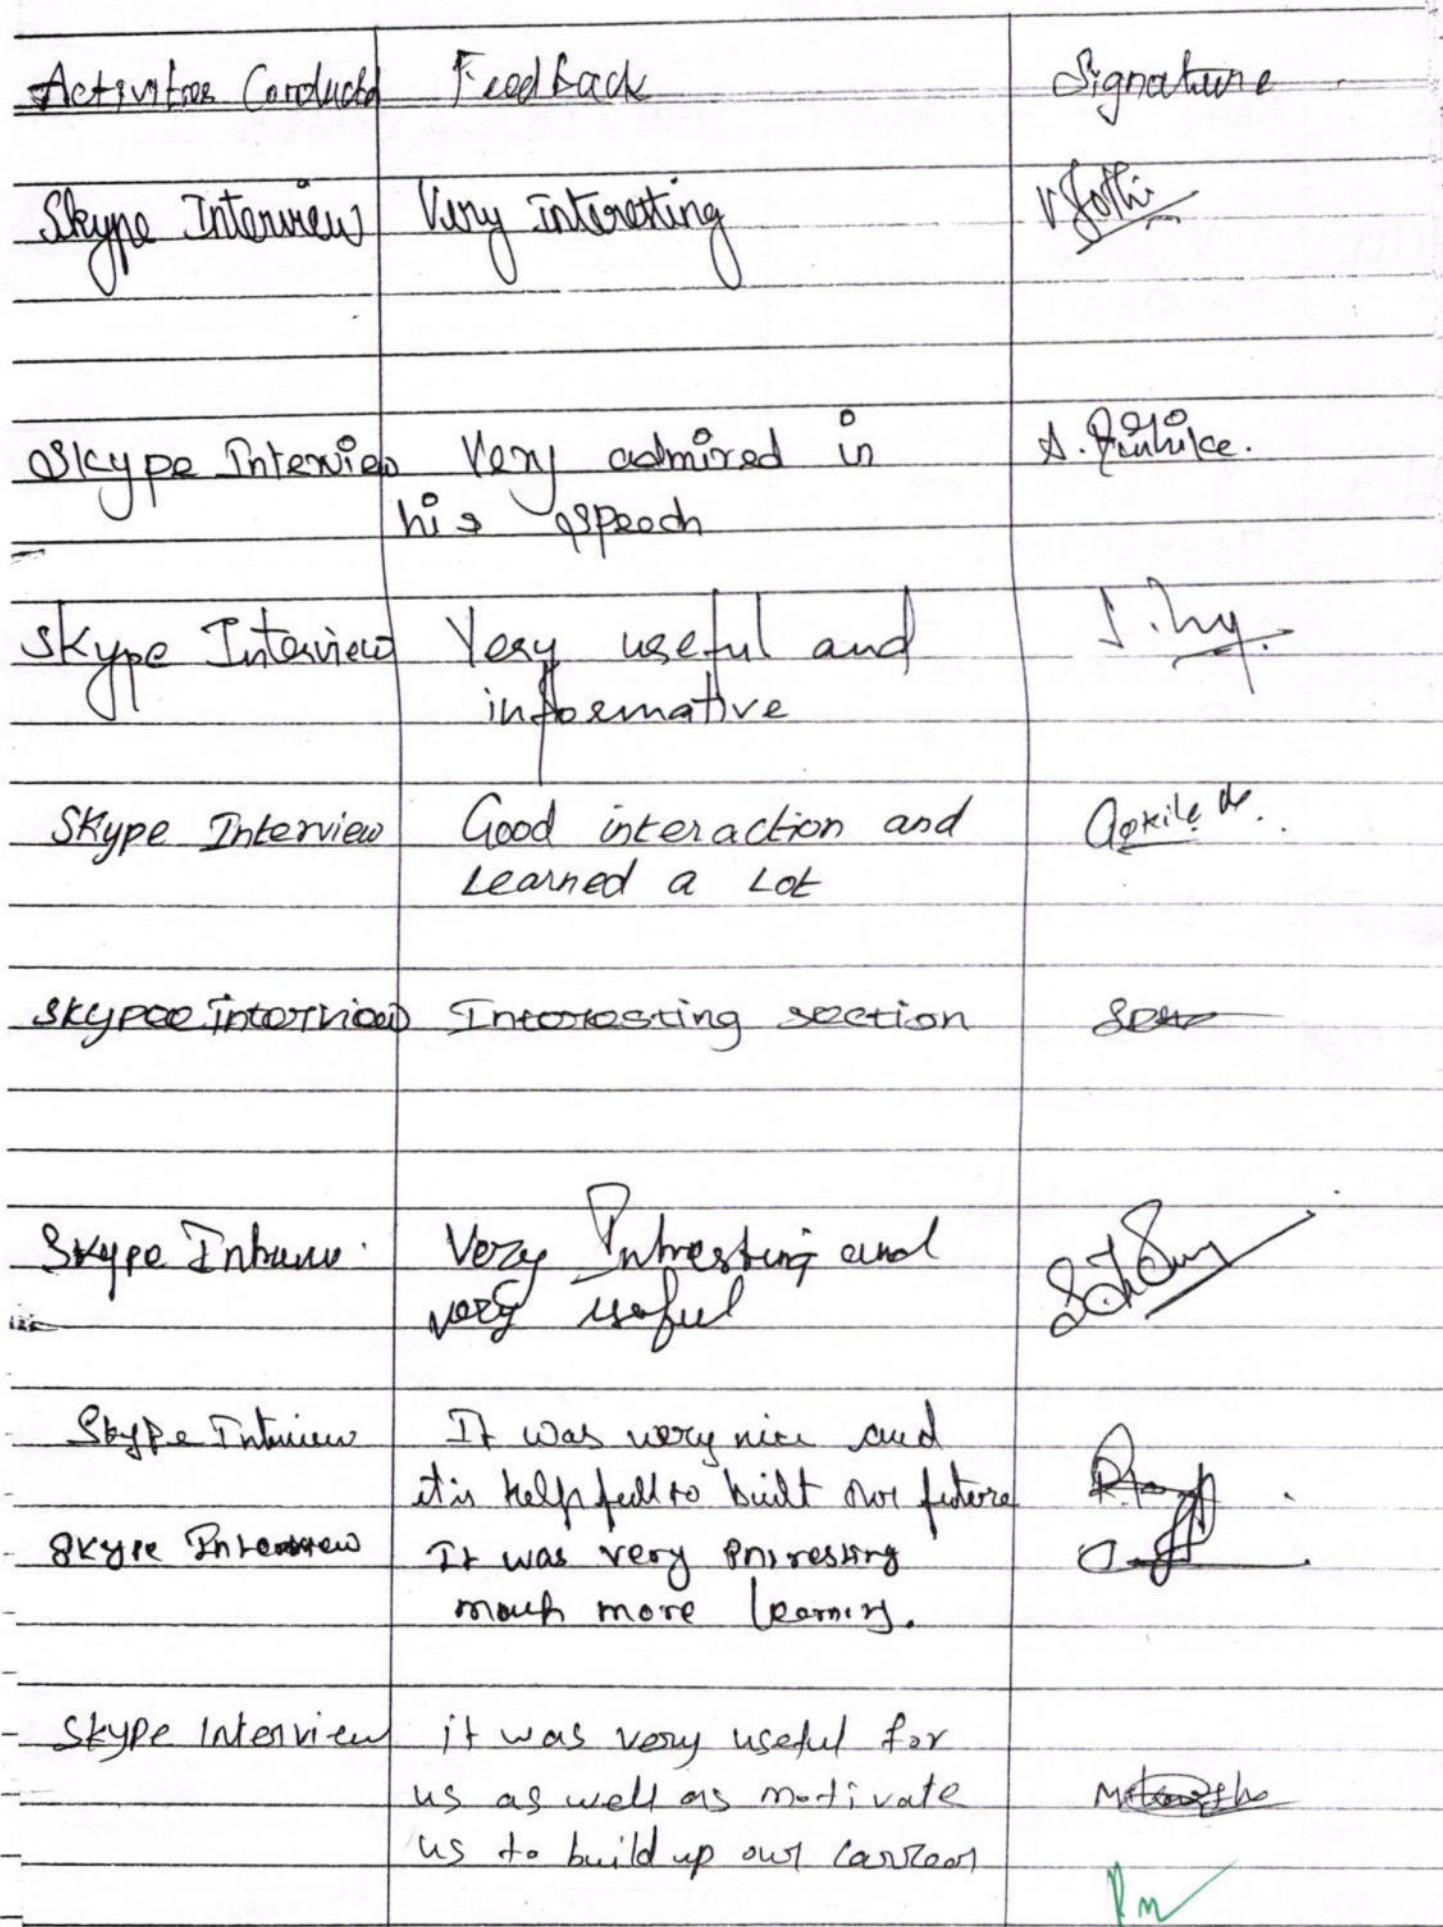 Activities Conducted Feedback Signature
Skype Interview Very interesting V Jothi
Skype Interview Very admired in
his speech
Skype Interview Very useful and
informative
Skype Interview Good interaction and
Learned a Lot
Skypee interview Interesting section
Skype Interview Very Intresting and
very useful
Skype Interview It was very nice and
it is help full to built our future
Skype Interview It was very intresting
much more learning.
Skype Interview it was very useful for
us as well as motivate
us to build up our carreor